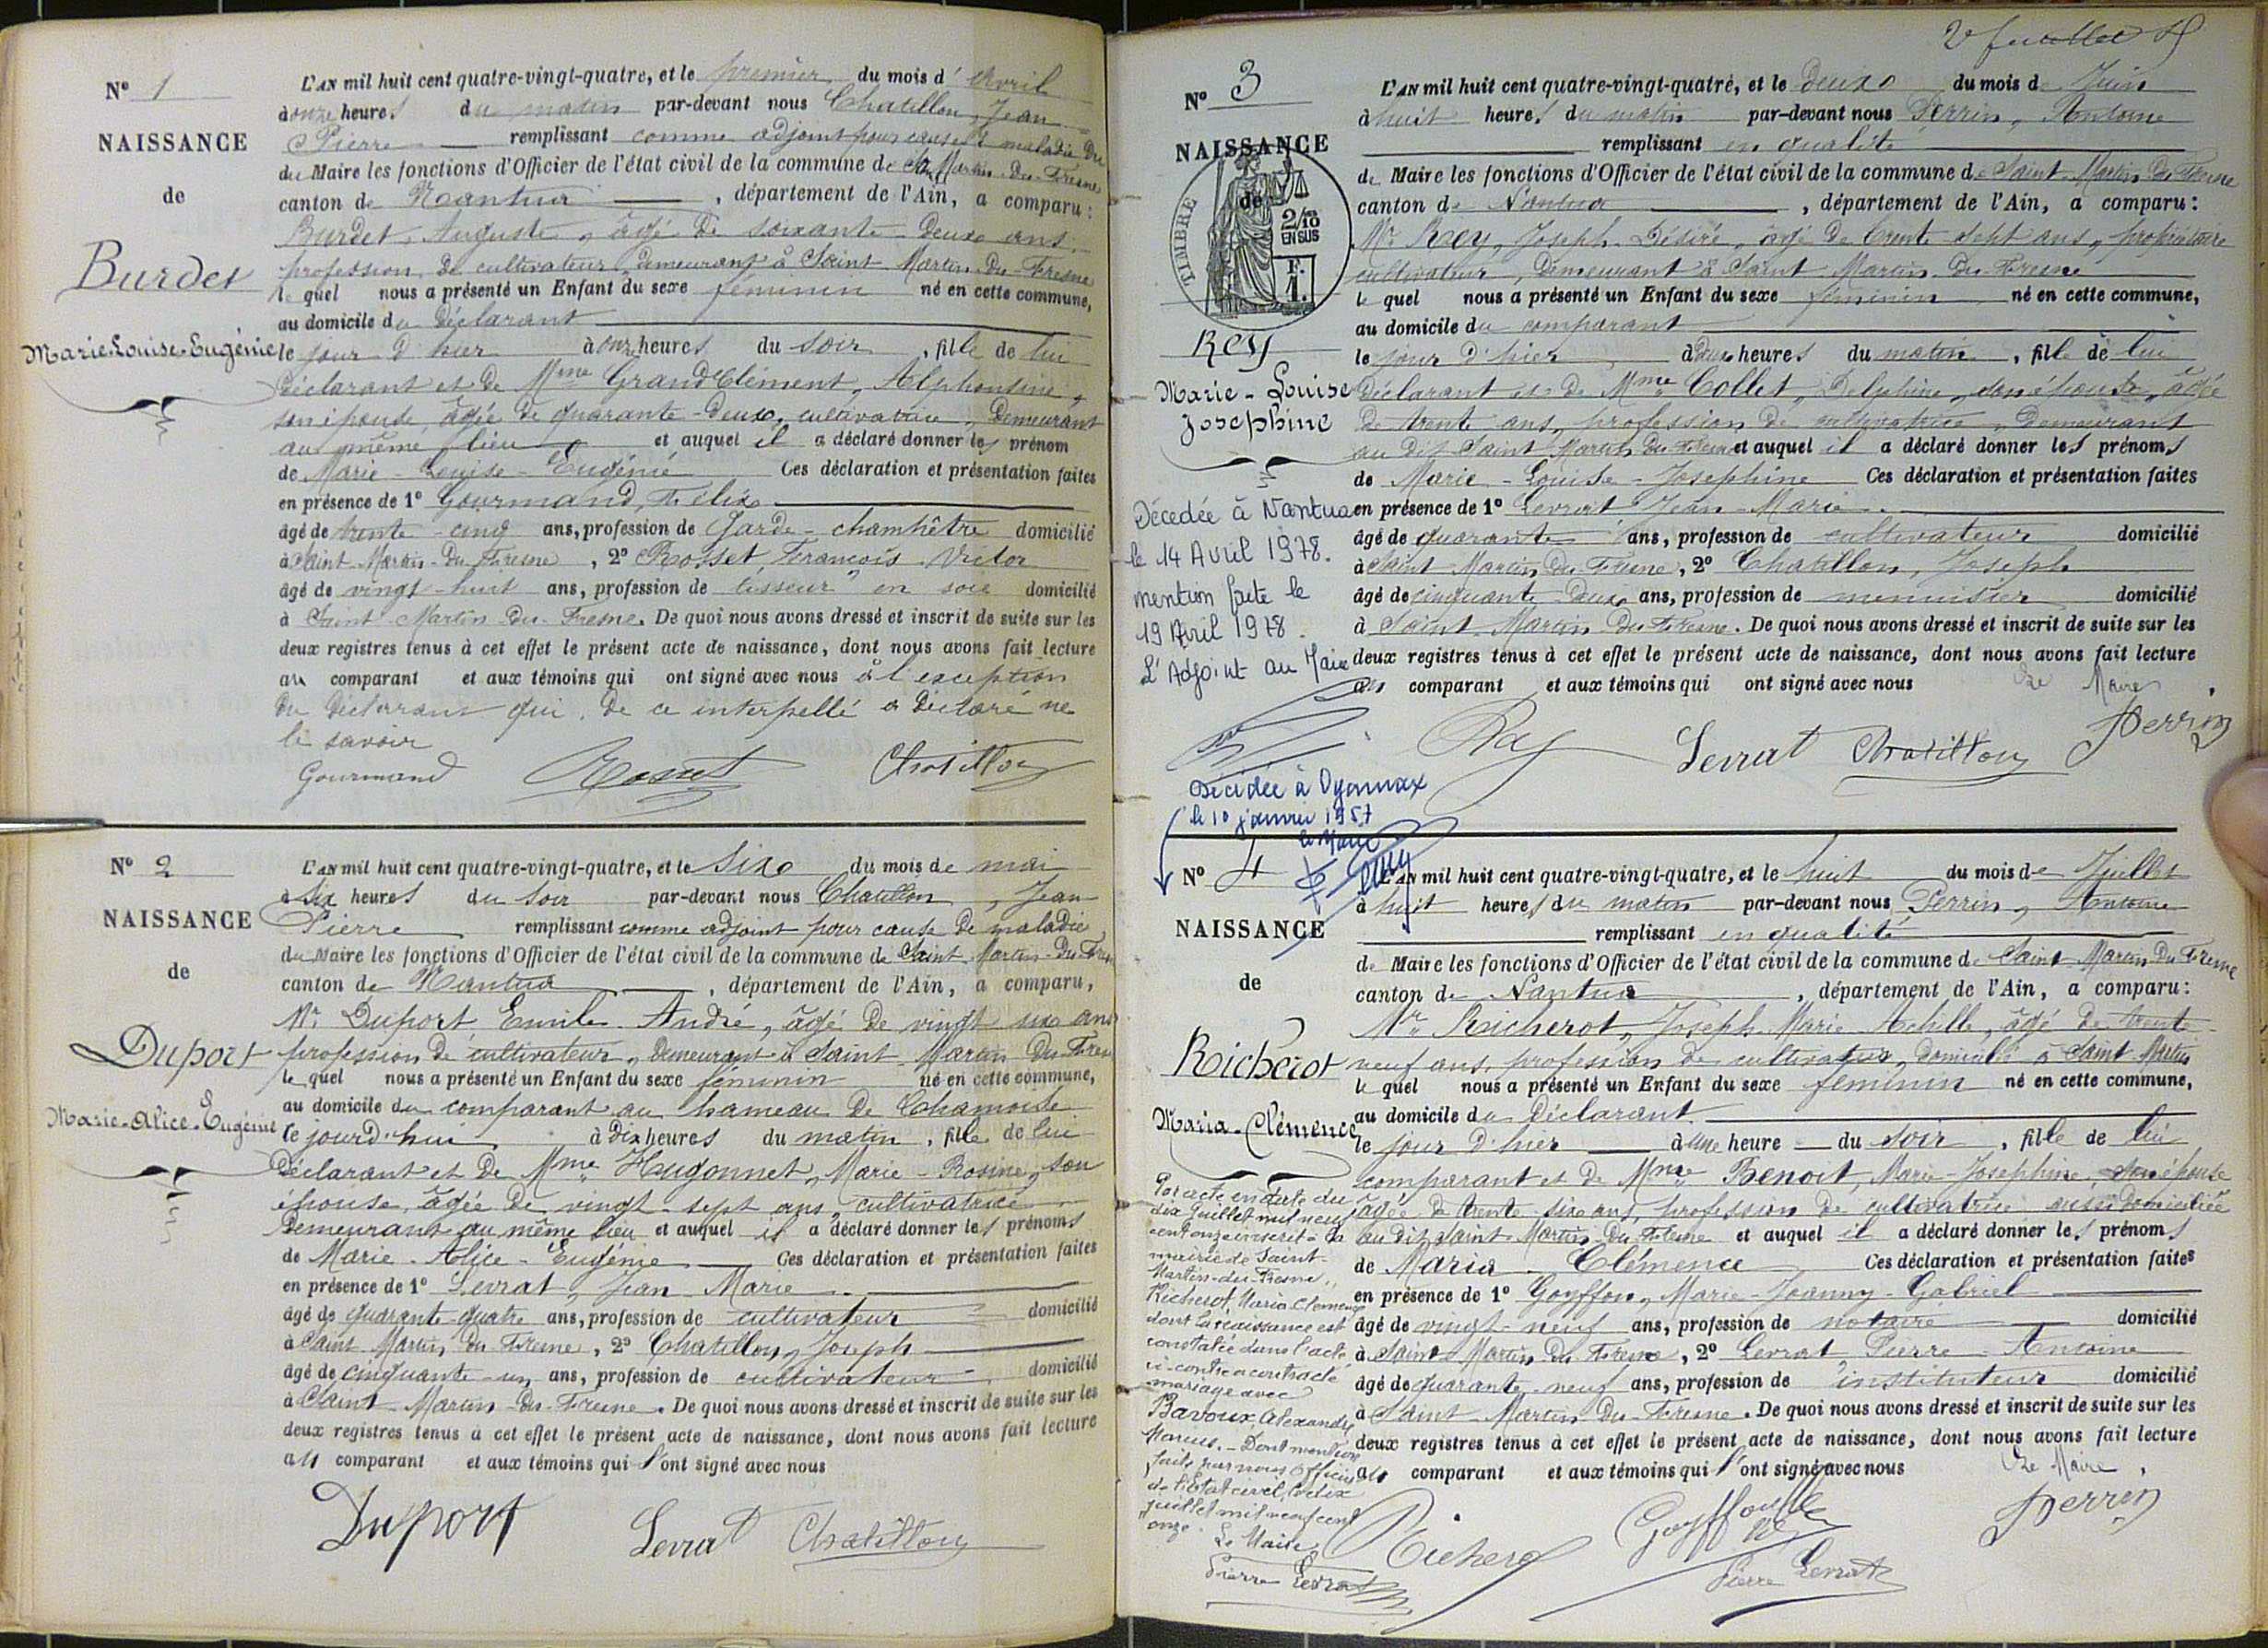 N° 1
NAISSANCE
de
Burdet
Marie-Louise-Eugénie
L'AN mil huit cent quatre-vingt-quatre, et le premier du mois d'Avril
à onze heures du matin par-devant nous Chatillon, Jean
Pierre remplissant comme adjoint pour cause de maladie du
du Maire les fonctions d'Officier de l'état civil de la commune de St Martin-Du-Fresne
canton de Nantua, département de l'Ain, a comparu:
Burdet, Auguste, âgé de soixante-deux ans,
profession de cultivateur, demeurant à Saint-Martin-Du-Fresne
le quel nous a présenté un Enfant du sexe féminin né en cette commune,
au domicile du déclarant
le jour d'hier à onze heures du soir, fille de lui
déclarant et de Mme GrandClément, Alphonsine,
son épouse, âgée de quarante-deux, cultivatrice, Demeurant
au même lieu et auquel il a déclaré donner les prénom
de Marie-Louise-Eugénie Ces déclaration et présentation faites
en présence de 1° Gourmand, Félix
âgé de trente-cinq ans, profession de Garde-champêtre domicilié
à Saint-Martin-Du-Fresne, 2° Rosset, François Victor
âgé de vingt-huit ans, profession de tisseur en soie domicilié
à Saint-Martin-Du-Fresne. De quoi nous avons dressé et inscrit de suite sur les
deux registres tenus à cet effet le présent acte de naissance, dont nous avons fait lecture
au comparant et aux témoins qui ont signé avec nous à l'exception
du déclarant qui, de ce interpellé a déclaré ne
le savoir
Gourmand Rosset Chatillon
N° 2
NAISSANCE
de
Duport
Marie-Alice-Eugénie
L'AN mil huit cent quatre-vingt-quatre, et le Six du mois de mai
à Six heures du soir par-devant nous Chatillon, Jean
Pierre remplissant comme adjoint pour cause de maladie
du Maire les fonctions d'Officier de l'état civil de la commune de Saint-Martin-Du-Fresne
canton de Nantua, département de l'Ain, a comparu,
Mr Duport Emile André, âgé de vingt six ans
profession de cultivateur, demeurant à Saint-Martin-Du-Fresne
le quel nous a présenté un Enfant du sexe féminin né en cette commune,
au domicile du comparant au hameau de Chamoise
le jourd'hui à dix heures du matin, fille de lui
déclarant et de Mme Hugonnet, Marie-Rosine, son
épouse, âgée de vingt-sept ans, cultivatrice
Demeurant au même lieu et auquel il a déclaré donner les prénoms
de Marie-Alice-Eugénie Ces déclaration et présentation faites
en présence de 1° Levrat, Jean-Marie
âgé de quarante-quatre ans, profession de cultivateur domicilié
à Saint Martin du Fresne, 2° Chatillon, Joseph
âgé de cinquante-un ans, profession de cultivateur domicilié
à Saint-Martin-Du-Fresne. De quoi nous avons dressé et inscrit de suite sur les
deux registres tenus à cet effet le présent acte de naissance, dont nous avons fait lecture
au comparant et aux témoins qui l'ont signé avec nous
Duport Levrat Chatillon
2e feuillet
N° 3
NAISSANCE
de
TIMBRE
2/10 EN SUS
F. 1.
Rey
Marie-Louise
Josephine
Décédée à Nantua
le 14 Avril 1978.
mention faite le
19 Avril 1978.
L'Adjoint au Maire
L'AN mil huit cent quatre-vingt-quatre, et le deux du mois de Juin
à huit heures du matin par-devant nous Perrin, Antoine
remplissant en qualité
de Maire les fonctions d'Officier de l'état civil de la commune de Saint-Martin Du Fresne
canton de Nantua, département de l'Ain, a comparu:
Mr Rey, Joseph-Désiré, âgé de trente-sept ans, propriétaire
cultivateur, demeurant à Saint-Martin-Du-Fresne
le quel nous a présenté un Enfant du sexe féminin né en cette commune,
au domicile du comparant
le jour d'hier à deux heures du matin, fille de lui
déclarant et de Mme Collet, Delphine, son épouse, âgée
de trente ans, profession de cultivatrice, Demeurant
au dit Saint Martin Du Fresne et auquel il a déclaré donner les prénoms
de Marie-Louise-Josephine Ces déclaration et présentation faites
en présence de 1° Levrat Jean-Marie
âgé de quarante ans, profession de cultivateur domicilié
à Saint-Martin-Du-Fresne, 2° Chatillon, Joseph
âgé de cinquante-deux ans, profession de menuisier domicilié
à Saint-Martin-Du-Fresne. De quoi nous avons dressé et inscrit de suite sur les
deux registres tenus à cet effet le présent acte de naissance, dont nous avons fait lecture
au comparant et aux témoins qui ont signé avec nous Le Maire,
Rey Levrat Chatillon Perrin
Décédée à Oyonnax
le 10 janvier 1957
le Maire
N° 4
NAISSANCE
de
Richerot
Maria-Clémence
Par acte en date du
dix Juillet mil neuf
cent onze inscrit à la
mairie de Saint-
Martin-du-Fresne,
Richerot, Maria Clémence
dont la naissance est
constatée dans l'acte
ci-contre a contracté
mariage avec
Bavoux, Alexandre
Marius. - Dont mention
faite par nous officier
de l'Etat civil, le dix
juillet mil neuf cent
onze.
Le Maire,
Pierre Levrat
L'AN mil huit cent quatre-vingt-quatre, et le huit du mois de Juillet
à huit heures du matin par-devant nous Perrin, Antoine
remplissant en qualité
de Maire les fonctions d'Officier de l'état civil de la commune de Saint-Martin Du Fresne
canton de Nantua, département de l'Ain, a comparu:
Mr Richerot, Joseph-Marie-Achille, âgé de trente
neuf ans, profession de cultivateur, domicilié à Saint Martin
le quel nous a présenté un Enfant du sexe féminin né en cette commune,
au domicile du déclarant
le jour d'hier à une heure du soir, fille de lui
comparant et de Mme Benoit, Marie-Josephine, son épouse
âgée de trente-six ans, profession de cultivatrice aussi domiciliée
au dit Saint-Martin-Du-Fresne et auquel il a déclaré donner les prénoms
de Maria Clémence Ces déclaration et présentation faites
en présence de 1° Goyffon, Marie-Joanny-Gabriel
âgé de vingt-neuf ans, profession de notaire domicilié
à Saint-Martin-Du-Fresne, 2° Levrat Pierre-Antoine
âgé de quarante-neuf ans, profession de instituteur domicilié
à Saint-Martin-Du-Fresne. De quoi nous avons dressé et inscrit de suite sur les
deux registres tenus à cet effet le présent acte de naissance, dont nous avons fait lecture
au comparant et aux témoins qui l'ont signé avec nous Le Maire,
Richerot Goyffon Perrin
Pierre Levrat